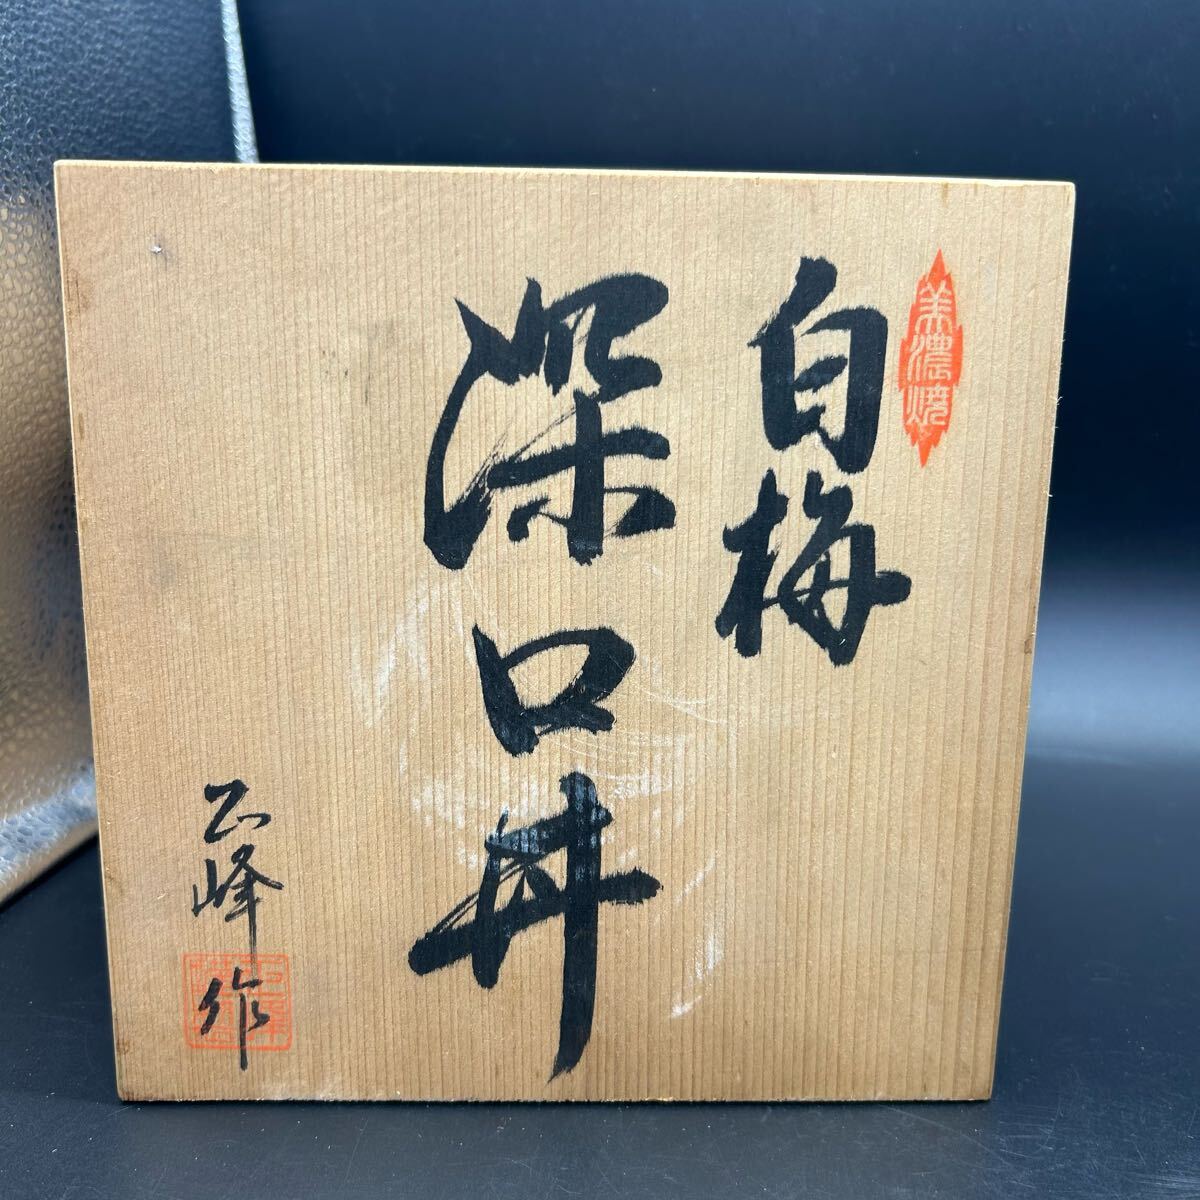 美濃焼
白梅
深口丼
正峰作